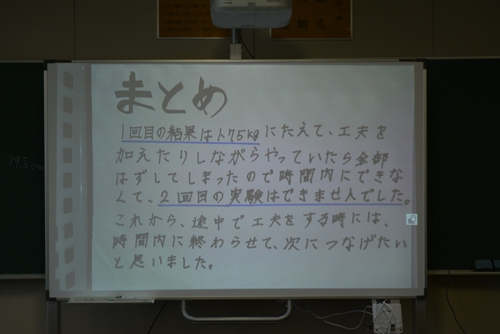 まとめ
1回目の結果は175kgにたえて、工夫を
加えたりしながらやっていたら全部
はずしてしまったので時間内にできな
くて、2回目の実験はできませんでした。
これから、途中で工夫をする時には、
時間内に終わらせて、次につなげたい
と思いました。